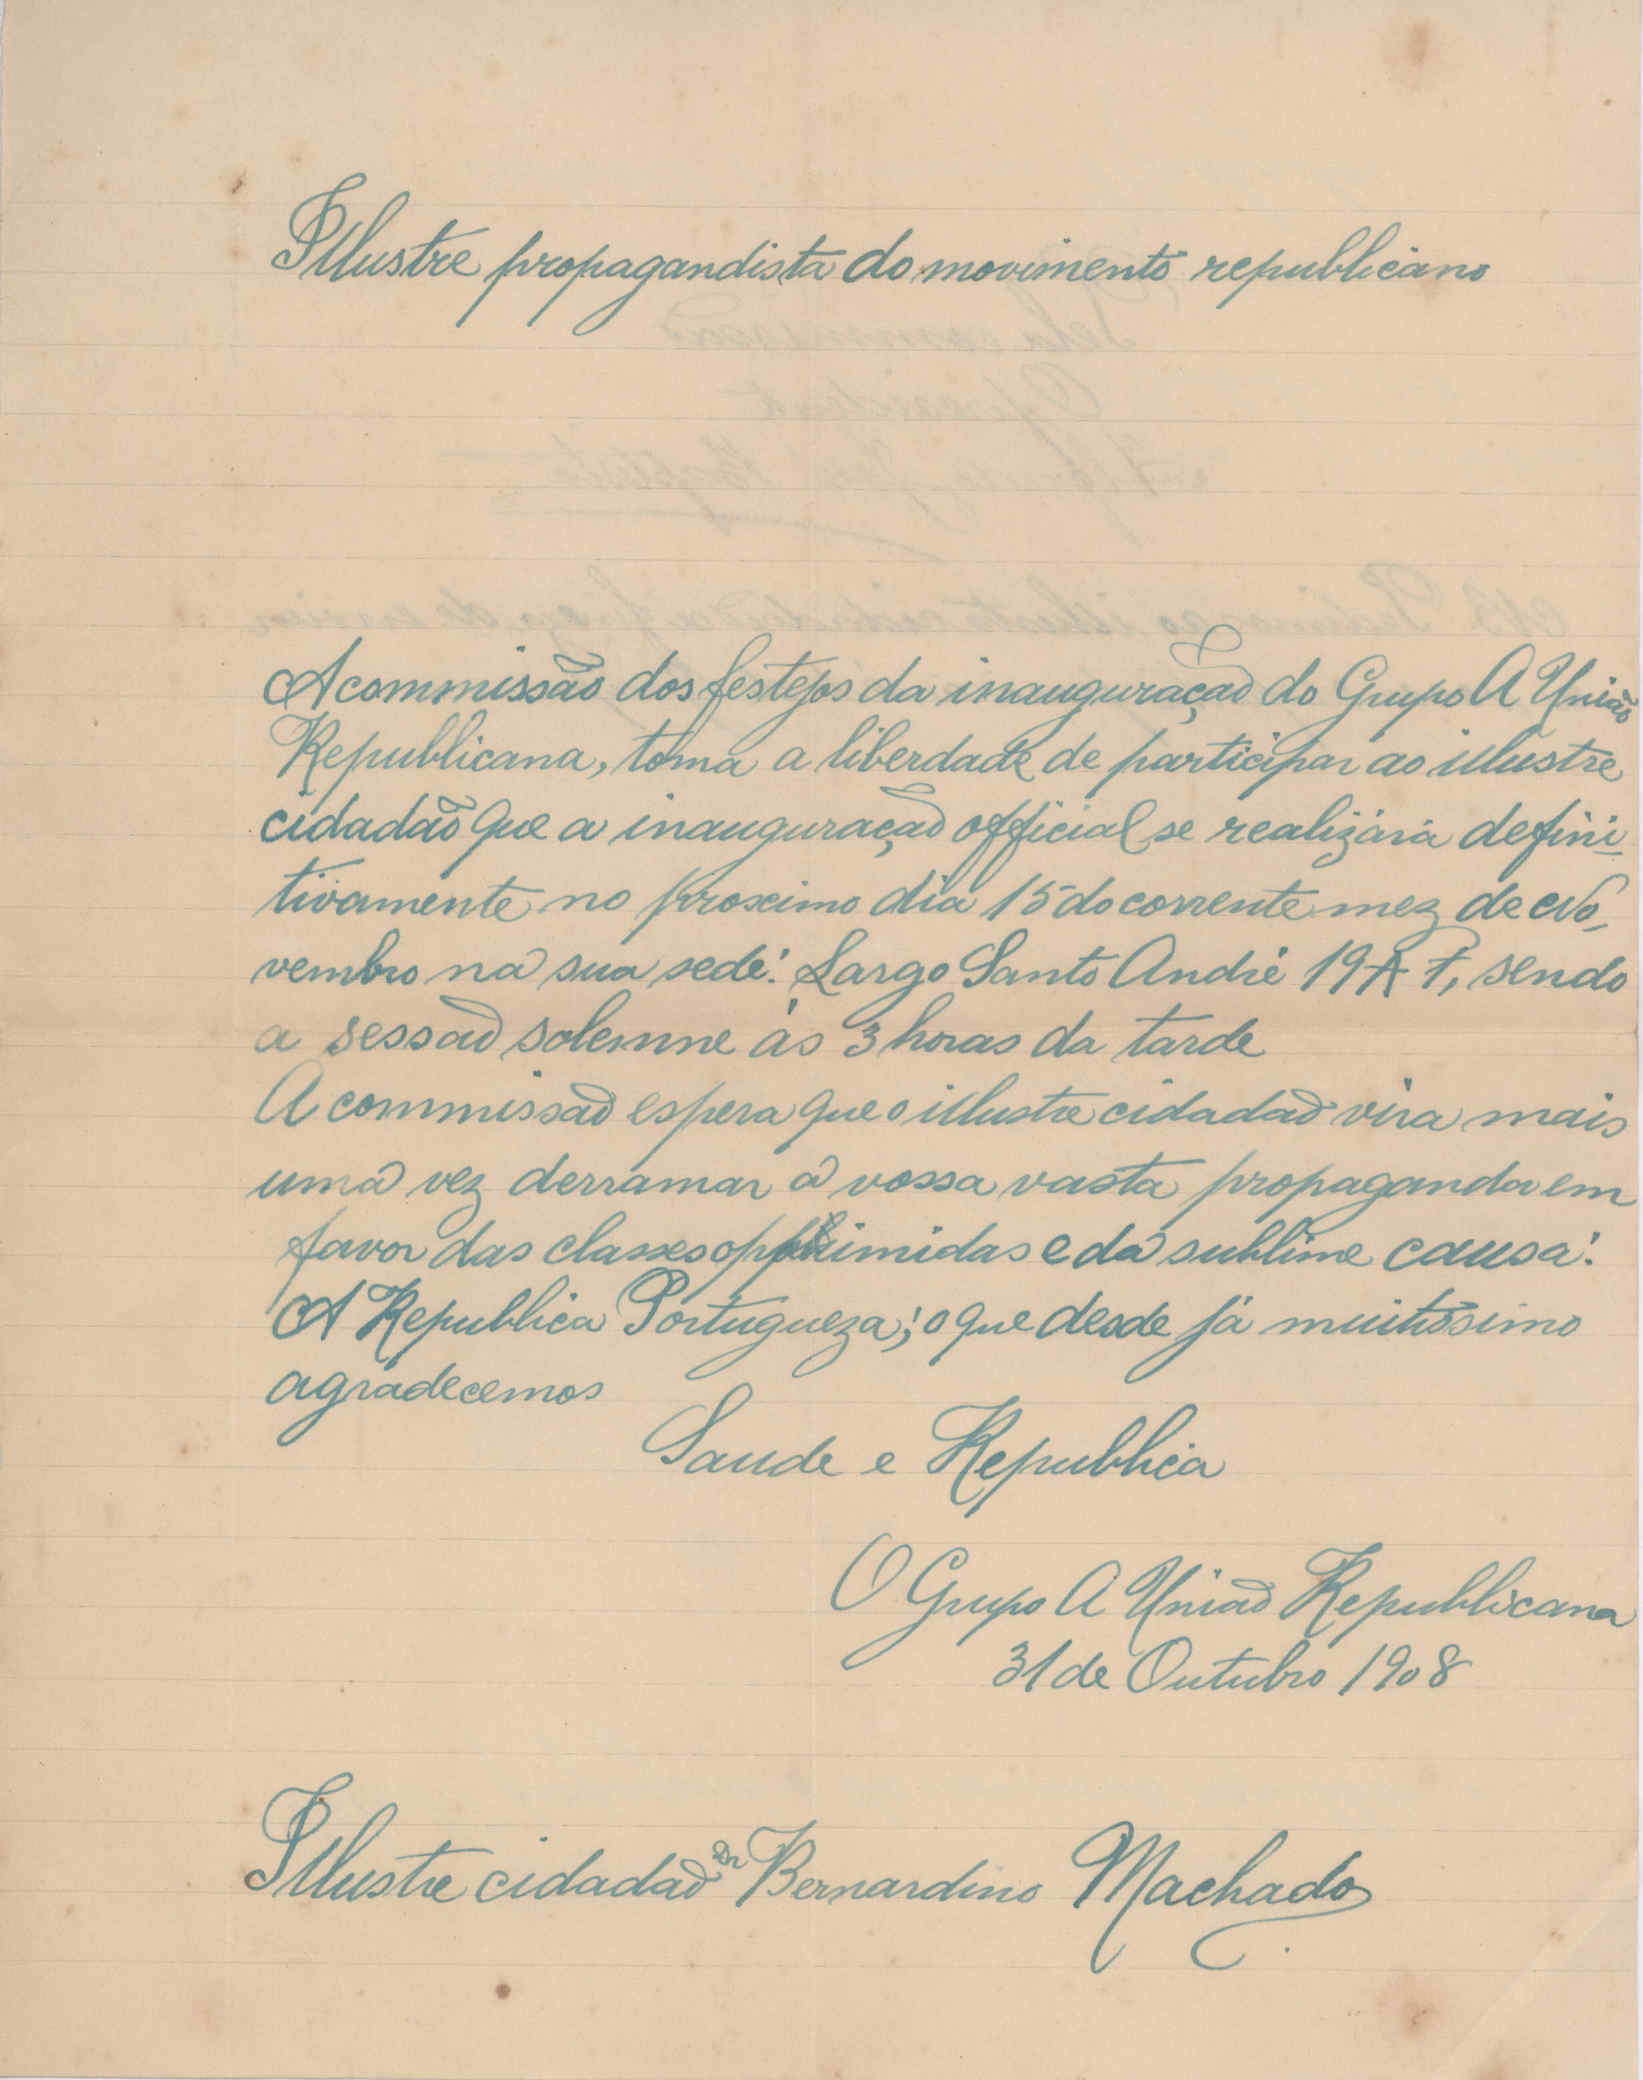 Illustre propagandista do movimento republicano
A commissão dos festejos da inauguração do Grupo A União
Republicana, toma a liberdade de participar ao illustre
cidadão que a inauguração official se realizará defini-
tivamente no proximo dia 15 do corrente mez de No-
vembro na sua sede: Largo Santo André 19 A 1º, sendo
a sessão solemne ás 3 horas da tarde
A commissão espera que o illustre cidadão virá mais
uma vez derramar a vossa vasta propaganda em
favor das classes opprimidas e da sublime causa:
A Republica Portugueza; o que desde já muitissimo
agradecemos
Saude e Republica
O Grupo A União Republicana
31 de Outubro 1908
Illustre cidadão Dr Bernardino Machado